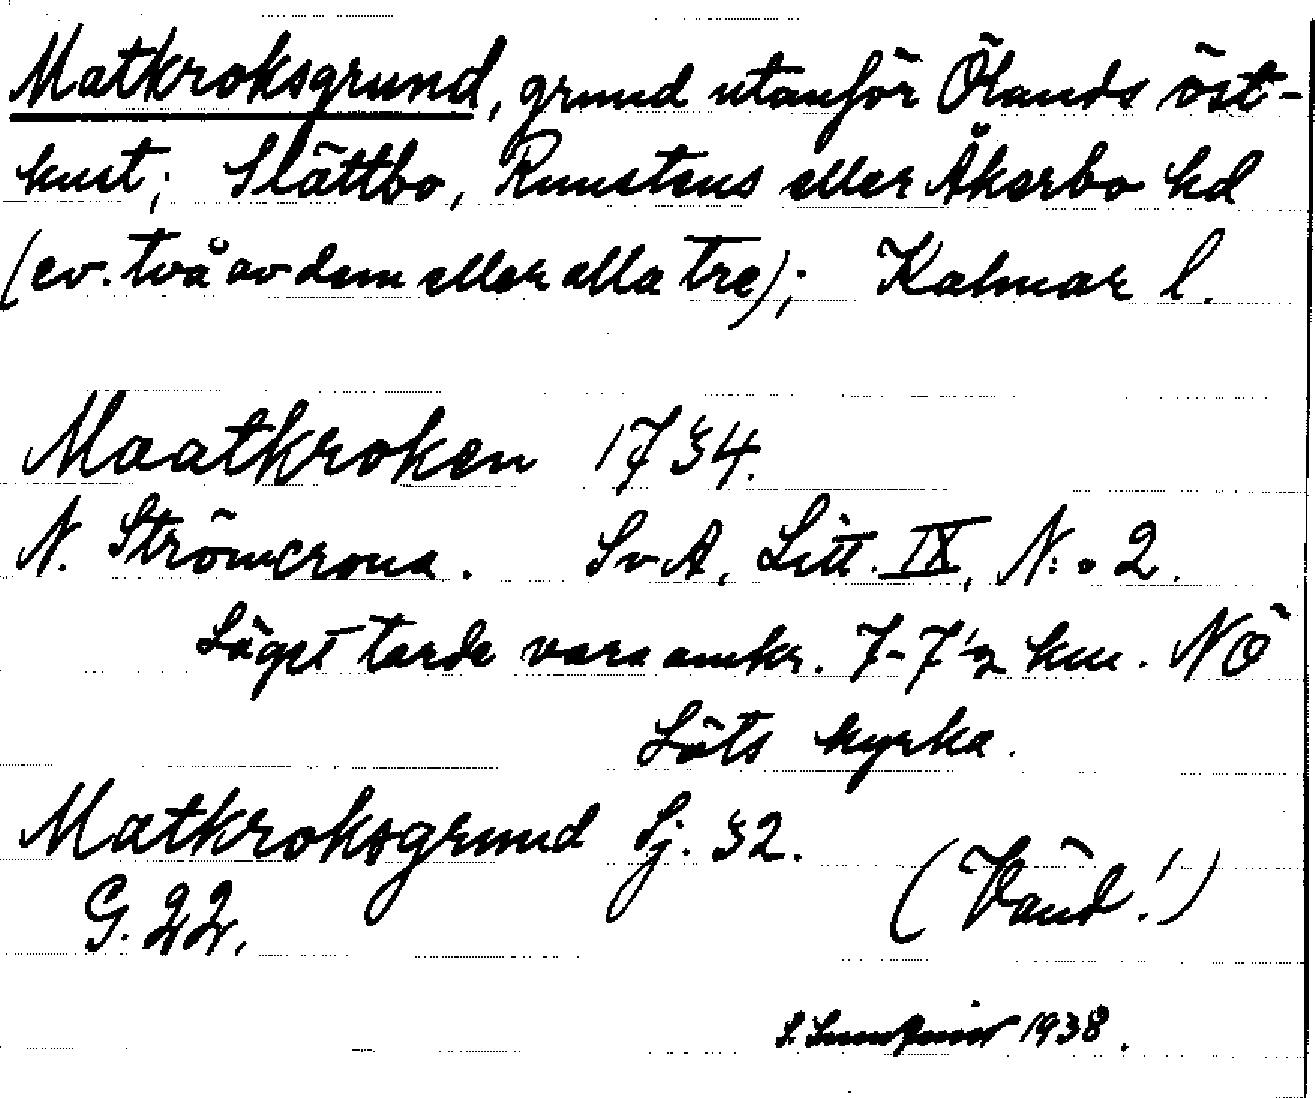 Matkroksgrund, grund utanför Ölands öst-
kust; Slättbo, Runstens eller Åkerbo hd
(ev. två av dem eller alla tre); Kalmar l.
Maatkroken 1734.
N. Strömcrona. SvA, Litt. IX, N:o 2.
Läget torde vara omkr. 7-7½ km. NÖ
Löts kyrka.
Matkroksgrund Sj. 32.
G. 22. (Vänd!)
S. Lundqvist 1938.